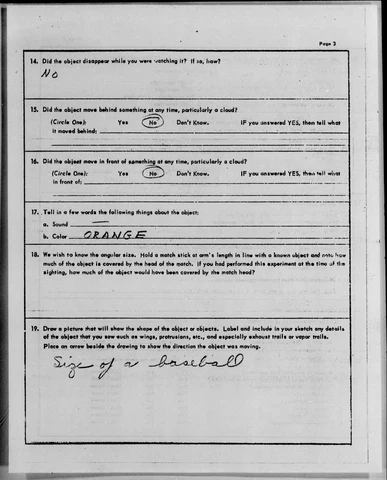 Page 3
14. Did the object disappear while you were watching it? If so, how?
No
15. Did the object move behind something at any time, particularly a cloud?
(Circle One): Yes No Don't Know. IF you answered YES, then tell what
it moved behind:
16. Did the object move in front of something at any time, particularly a cloud?
(Circle One): Yes No Don't Know. IF you answered YES, then tell what
in front of:
17. Tell in a few words the following things about the object:
a. Sound —
b. Color ORANGE
18. We wish to know the angular size. Hold a match stick at arm's length in line with a known object and note how
much of the object is covered by the head of the match. If you had performed this experiment at the time of the
sighting, how much of the object would have been covered by the match head?
19. Draw a picture that will show the shape of the object or objects. Label and include in your sketch any details
of the object that you saw such as wings, protrusions, etc., and especially exhaust trails or vapor trails.
Place an arrow beside the drawing to show the direction the object was moving.
Size of a baseball